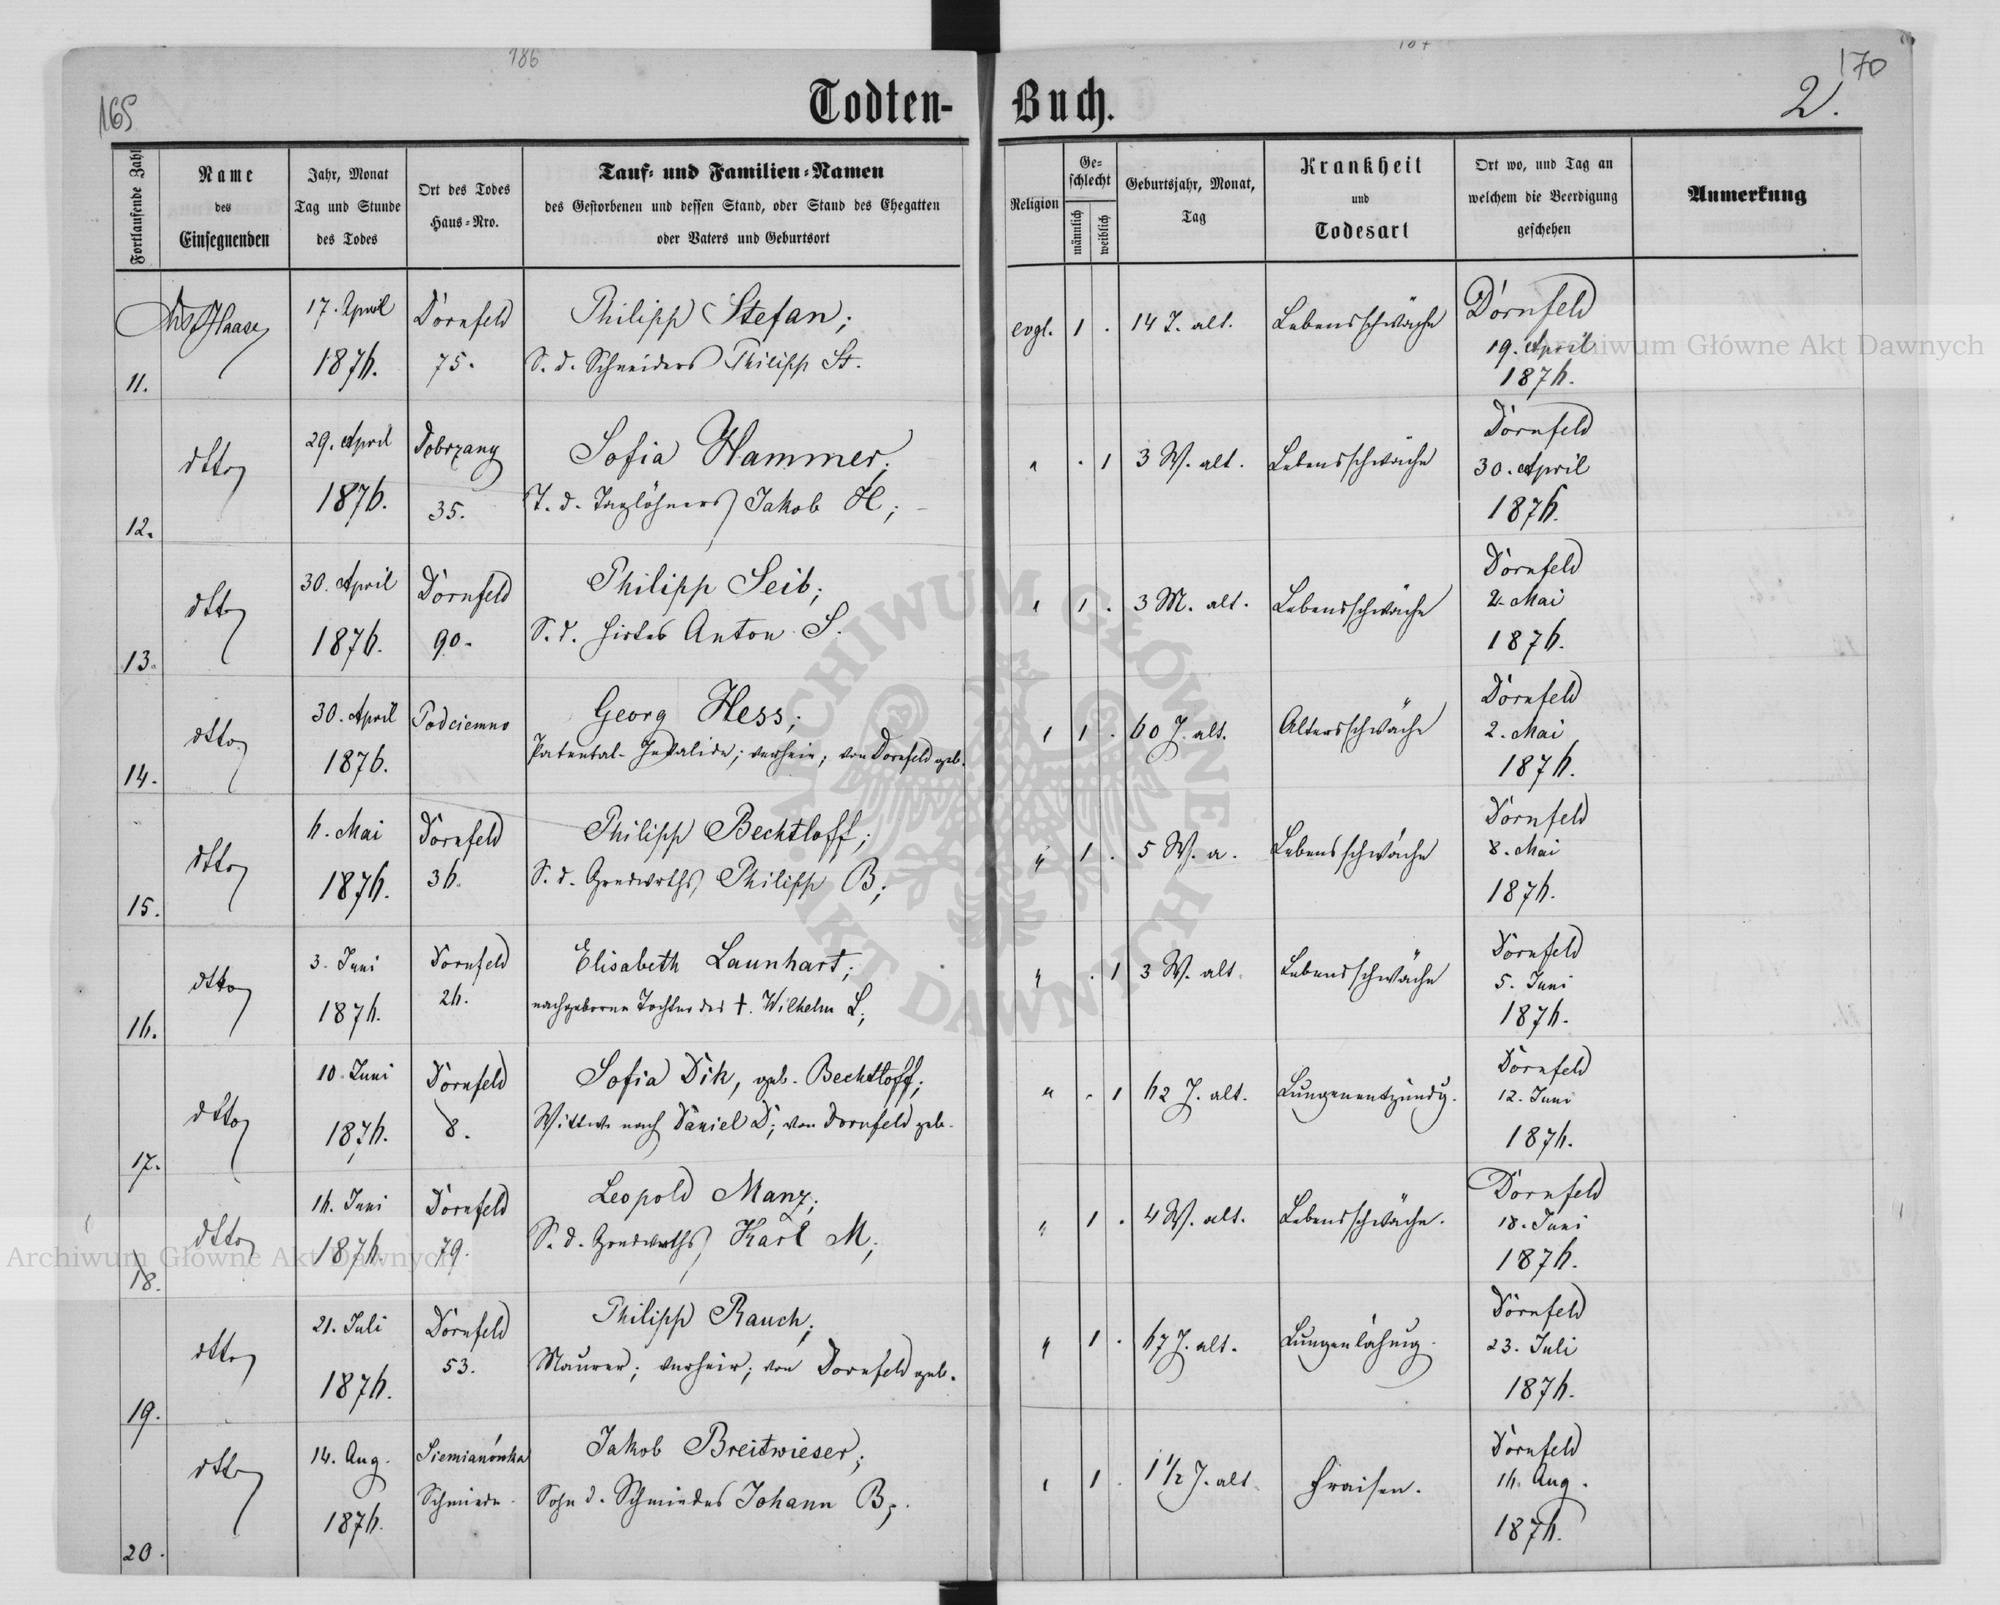 186
165
170
2.
Todten-Buch.
Fortlaufende Zahl
Name
des
Einsegnenden
Jahr, Monat
Tag und Stunde
des Todes
Ort des Todes
Haus-Nro.
Tauf- und Familien-Namen
des Gestorbenen und dessen Stand, oder Stand des Ehegatten
oder Vaters und Geburtsort
Religion
Ge-
schlecht
männlich
weiblich
Geburtsjahr, Monat,
Tag
Krankheit
und
Todesart
Ort wo, und Tag an
welchem die Beerdigung
geschehen
Anmerkung
Haase 17. April Dornfeld Philipp Stefan; evgl. 1 . 14 J. alt. Lebensschwäche Dornfeld
11. 1876. 75. S. d. Schneiders Philipp St. 19. April
1876.
dtto 29. April Dobrzany Sofia Hammer; " . 1 3 W. alt. Lebensschwäche Dornfeld
12. 1876. 35. T. d. Taglöhners Jakob H; 30. April
1876.
dtto 30. April Dornfeld Philipp Seib; " 1 . 3 M. alt. Lebensschwäche Dornfeld
13. 1876. 90. S. d. Hirtes Anton S. 2. Mai
1876.
dtto 30. April Podciemno Georg Hess; " 1 . 60 J. alt. Altersschwäche Dornfeld
14. 1876. Patental-Invalide; verheir; von Dornfeld geb. 2. Mai
1876.
dtto 6. Mai Dornfeld Philipp Bechtloff; " 1 . 5 W. a. Lebensschwäche Dornfeld
15. 1876. 36. S. d. Grndwrths Philipp B; 8. Mai
1876.
dtto 3. Juni Dornfeld Elisabeth Launhart; " . 1 3 W. alt. Lebensschwäche Dornfeld
16. 1876. 26. nachgeborne Tochter des †. Wilhelm L; 5. Juni
1876.
dtto 10. Juni Dornfeld Sofia Dik, geb. Bechtloff; " . 1 62 J. alt. Lungenentzündg. Dornfeld
17. 1876. 8. Wittwe nach Daniel D; von Dornfeld geb. 12. Juni
1876.
dtto 16. Juni Dornfeld Leopold Manz; " 1 . 4 W. alt. Lebensschwäche. Dornfeld
18. 1876. 79. S. d. Grndwrths Karl M; 18. Juni
1876.
dtto 21. Juli Dornfeld Philipp Rauch; " 1 . 67 J. alt. Lungenlähmg. Dornfeld
19. 1876. 53. Maurer; verheir; von Dornfeld geb. 23. Juli
1876.
dtto 14. Aug. Siemianówka Jakob Breitwieser; " 1 . 1 1/2 J. alt. Fraisen. Dornfeld
20. 1876. Schmiede. Sohn d. Schmiedes Johann B; 16. Aug.
1876.
Archiwum Główne Akt Dawnych
ARCHIWUM GŁÓWNE AKT DAWNYCH
Archiwum Główne Akt Dawnych